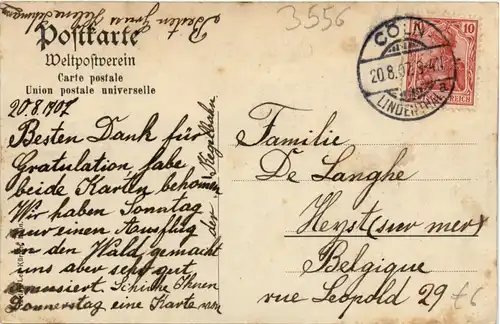 Besten Gruss
Helene
3556
Postkarte
Weltpostverein
Carte postale
Union postale universelle
CÖLN-
20.8.07. 3-4
LINDENTHAL
a.
10
REICH
20.8.1907
Besten Dank für
Gratulation habe
beide Karten bekommen
Wir haben Sonntag
nur einen Ausflug
in den Wald gemacht
uns aber sehr gut
amusiert Schicke Ihnen
Donnerstag eine Karte von
der Kegelbahn
Familie
De Langhe
Heyst (sur mer)
Belgique
rue Leopold 29
£6